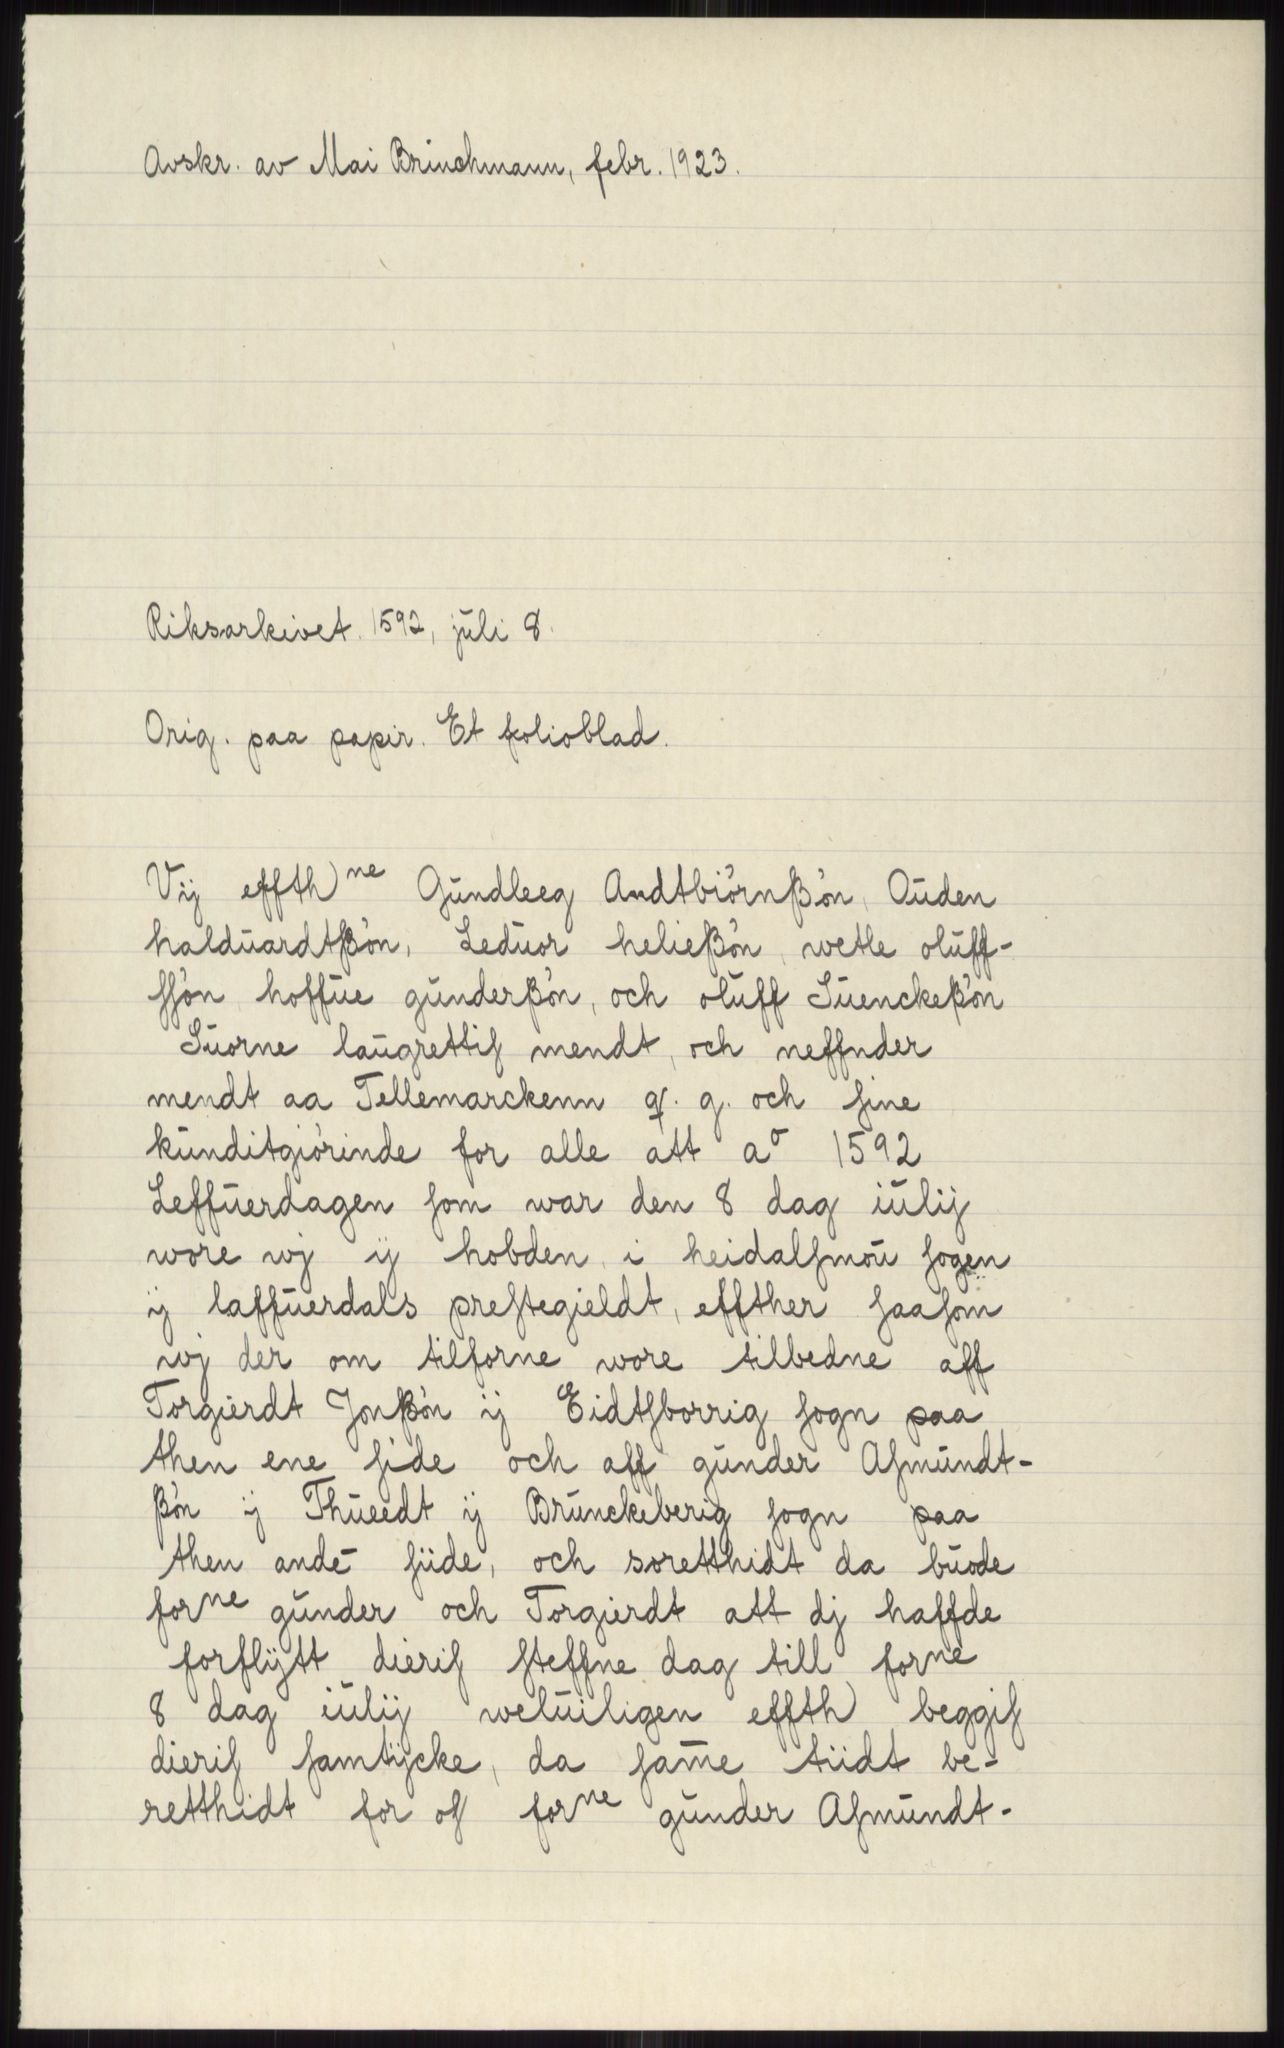 Avskr. av Mai Brinchmann, febr. 1923.
Riksarkivet. 1592, juli 8.
Orig. paa papir. Et folioblad.
Vij effth)ne Gůndleeg Andtbiórnßón, Oůden
haldůardtßón, Ledůor heließón, wetle olůff-
ſſón, hoffůe gůnderßón, och olůff Sůenckeßón
Sůorne laůgrettiſ mendt, och neffnder
mendt aa Tellemarckenn q. g. och ſine
kůnditgiórinde for alle att aº 1592
Leffůerdagen ſom war den 8 dag iůlij
wore wj ij hobden, i heidalſmoů ſogen
ij laffůerdals preſtegieldt, effther ſaaſom
wj der om tilforne wore tilbedne aff
Torgierdt Jonßón ij Eidtſborrig ſogn paa
then ene ſide och aff gůnder Aſmůndt-
ßón ij Thůeedt ij Brůnckeberig ſogn paa
then andē ſiide, och soretthidt da bůode
forne gůnder och Torgierdt att dj haffde
forflijtt dieriſ ſteffne dag till forne
8 dag iůlij welůiligen effth) beggiſ
dieriſ ſamtijcke, da ſam̄e tiidt be-
retthidt for oſ forne gůnder Aſmůndt-